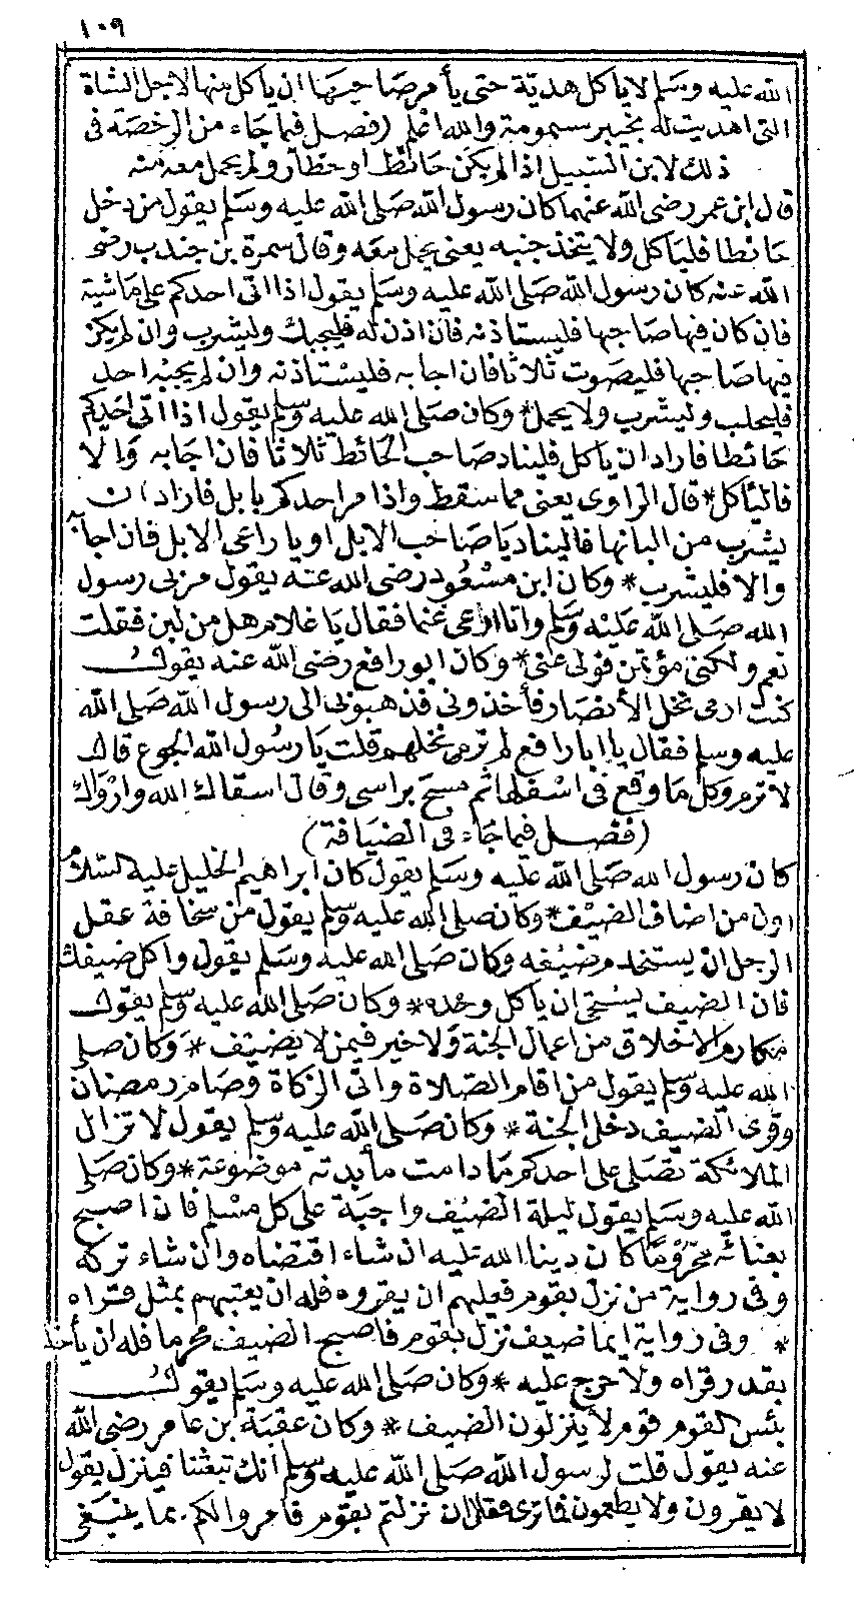 ١٠٩
الله عليه وسلم لا ياكل هدية حتى يأمر صاحبها ان ياكل منها لاجل الشاة
التى اهديت له بخيبر مسمومة والله اعلم (فصل فيما جاء من الرخصة فى
ذلك لابن السبيل اذا لم يكن حائط او حظار ولم يحمل معه منه
قال ابن عمر رضى الله عنهما كان رسول الله صلى الله عليه وسلم يقول من دخل
حائطا فلياكل ولا يتخذ جنبه يعنى يحمل معه وقال سمرة بن جندب رضى
الله عنه كان رسول الله صلى الله عليه وسلم يقول اذا اتى احدكم على ماشية
فان كان فيها صاحبها فليستاذنه فان اذن له فليحبلب وليشرب وان لم يكن
فيها صاحبها فليصوت ثلاثا فان اجابه فليستاذنه وان لم يجبه احد
فليحلب وليشرب ولا يحمل* وكان صلى الله عليه وسلم يقول اذا اتى احدكم
حائطا فاراد ان ياكل فليناد صاحب الحائط ثلاثا فان اجابه والا
فالياكل* قال الراوى يعنى مما سقط واذا مر احدكم بابل فاراد ان
يشرب من البانها فالينادي يا صاحب الابل او يا راعى الابل فان اجابه
والا فليشرب* وكان ابن مسعود رضى الله عنه يقول مر بى رسول
الله صلى الله عليه وسلم وانا ارعى غنما فقال يا غلام هل من لبن فقلت
نعم ولكنى مؤتمن فولى عنى* وكان ابو رافع رضى الله عنه يقول
كنت ارمى نخل الأنصار فأخذونى فذهبوا بى الى رسول الله صلى الله
عليه وسلم فقال يا ابا رافع لم ترمى نخلهم قلت يا رسول الله الجوع قال
لا ترم وكل ما وقع فى اسفلها ثم مسح براسى وقال اسقاك الله وارواك
(فصل فيما جاء فى الضيافة)
كان رسول الله صلى الله عليه وسلم يقول كان ابراهيم الخليل عليه السلام
اول من اضاف الضيف* وكان صلى الله عليه وسلم يقول من سخافة عقل
الرجل ان يستخدم ضيفه وكان صلى الله عليه وسلم يقول واكل ضيفك
فان الضيف يستحى ان ياكل وحده* وكان صلى الله عليه وسلم يقول
مكارم الاخلاق من اعمال الجنة ولا خير فيمن لا يضيف* وكان صلى
الله عليه وسلم يقول من اقام الصلاة واتى الزكاة وصام رمضان
وقرى الضيف دخل الجنة* وكان صلى الله عليه وسلم يقول لا تزال
الملائكة تصلى على احدكم ما دامت مأبدته موضوعة* وكان صلى
الله عليه وسلم يقول ليلة الضيف واجبة على كل مسلم فان اصبح
بفنائه محروما كان دينا لله عليه ان شاء اقتضاه وان شاء تركه
وفى رواية من نزل بقوم فعليهم ان يقروه فله ان يعتبهم بمثل قراه
* وفى رواية ايما ضيف نزل بقوم فاصبح الضيف محرما فله ان يأخذ
بقدر قراه ولا حرج عليه* وكان صلى الله عليه وسلم يقول
بئس القوم قوم لا ينزلون الضيف* وكان عقبة بن عامر رضى الله
عنه يقول قلت لرسول الله صلى الله عليه وسلم انك تبعثنا فينزل بقوم
لا يقرون ولا يطعمون فما ترى فقال ان نزلتم بقوم فامروا لكم بما ينبغى